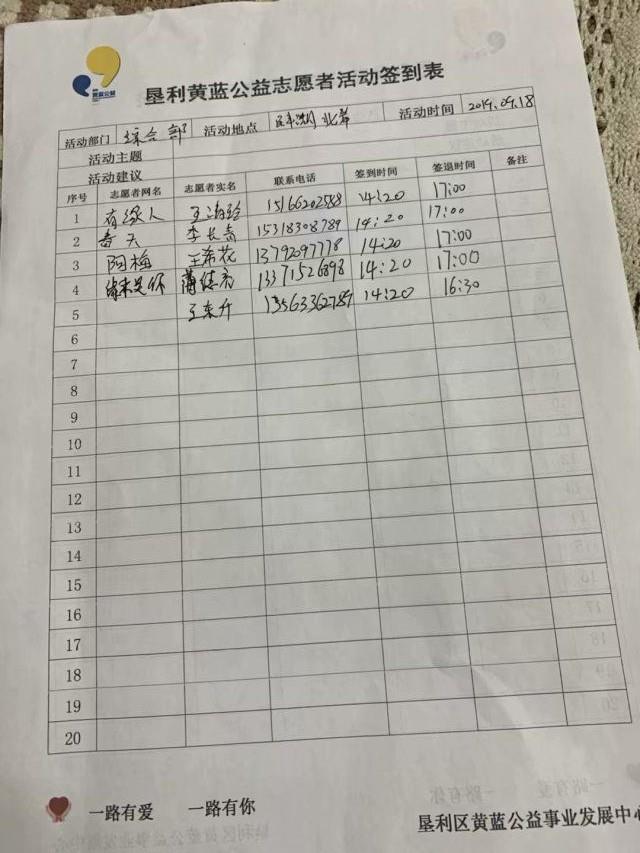 黄蓝公益
垦利黄蓝公益志愿者活动签到表
活动部门 综合部 活动地点 北岸 活动时间 2019.09.18
活动主题
活动建议
序号 志愿者网名 志愿者实名 联系电话 签到时间 签退时间 备注
1 有缘人 王海玲 15166202588 14:20 17:00
2 春天 李长青 15318308789 14:20 17:00
3 阿梅 王希花 13792097778 14:20 17:00
4 缘来是你 13371526898 14:20 17:00
5 王东升 13563362789 14:20 16:30
6
7
8
9
10
11
12
13
14
15
16
17
18
19
20
一路有爱 一路有你
垦利区黄蓝公益事业发展中心